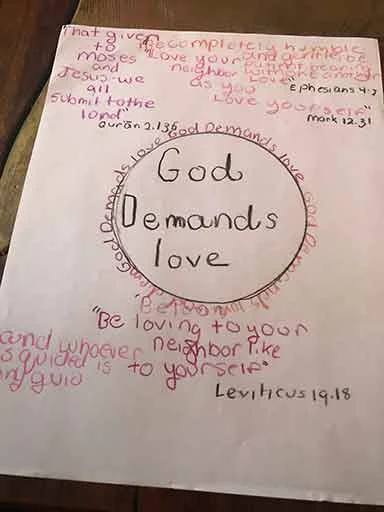 That given
to
moses
and
Jesus-we
all
Submit to the
lord"
Qur'an 2.136
"Be completely humble
and gentle; be
patient bearing
with one another
Love"
Ephesians 4:2
"Love your
neighbor
as you
Love yourself"
Mark 12.31
God Demands love God Demands love God Demands
God
Demands
love
"Be loving to your
neighbor like
to yourself"
Leviticus 19.18
and whoever
guided is